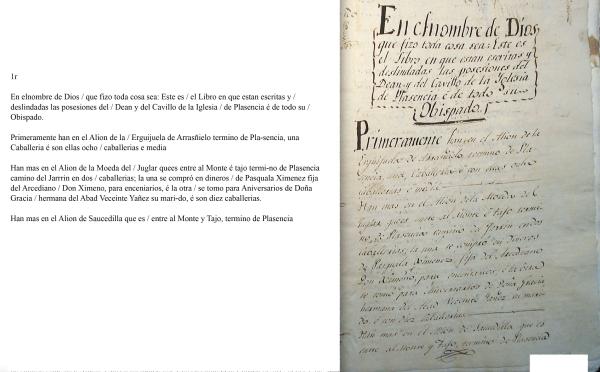 1r
En elnombre de Dios / que fizo toda cosa sea: Este es / el Libro en que estan escritas y /
deslindadas las posesiones del / Dean y del Cavillo de la Iglesia / de Plasencia é de todo su /
Obispado.
Primeramente han en el Alion de la / Erguijuela de Arrasñielo termino de Pla-sencia, una
Caballeria é son ellas ocho / caballerias e media
Han mas en el Alion de la Moeda del / Juglar quees entre al Monte é tajo termi-no de Plasencia
camino del Jarrrin en dos / caballerias; la una se compró en dineros / de Pasquala Ximenez fija
del Arcediano / Don Ximeno, para enceniarios, é la otra / se tomo para Aniversarios de Doña
Gracia / hermana del Abad Veceinte Yañez su mari-do, é son diez caballerias.
Han mas en el Alion de Saucedilla que es / entre al Monte y Tajo, termino de Plasencia
En elnombre de Dios
que fizo toda cosa sea: Este es
el Libro en que estan escritas y
deslindadas las posesiones del
Dean y del Cavillo de la Iglesia
de Plasencia é de todo su
Obispado.
Primeramente han en el Alion de la
Erguijuela de Arrasñielo termino de Pla-
sencia, una Caballeria é son ellas ocho
caballerias e media
Han mas en el Alion de la Moeda del
Juglar quees entre al Monte é tajo termi-
no de Plasencia camino del Jarrin en dos
caballerias; la una se compró en dineros
de Pasquala Ximenez fija del Arcediano
Don Ximeno, para enceniarios, é la otra
se tomo para Aniversarios de Doña Gracia
hermana del Abad Veceinte Yañez su mari-
do, é son diez caballerias.
Han mas en el Alion de Saucedilla que es
entre al Monte y Tajo, termino de Plasencia